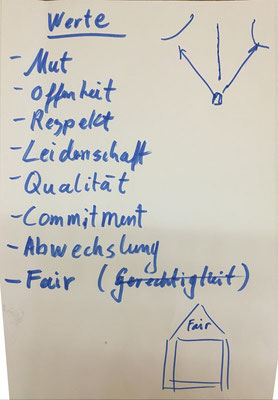 Werte
- Mut
- Offenheit
- Respekt
- Leidenschaft
- Qualität
- Commitment
- Abwechslung
- Fair (Gerechtigkeit)
Fair